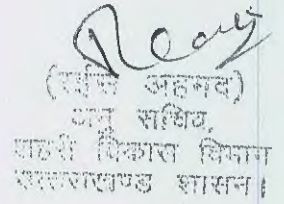 (रईस अहमद)
अपर सचिव,
शहरी विकास विभाग
उत्तराखण्ड शासन।